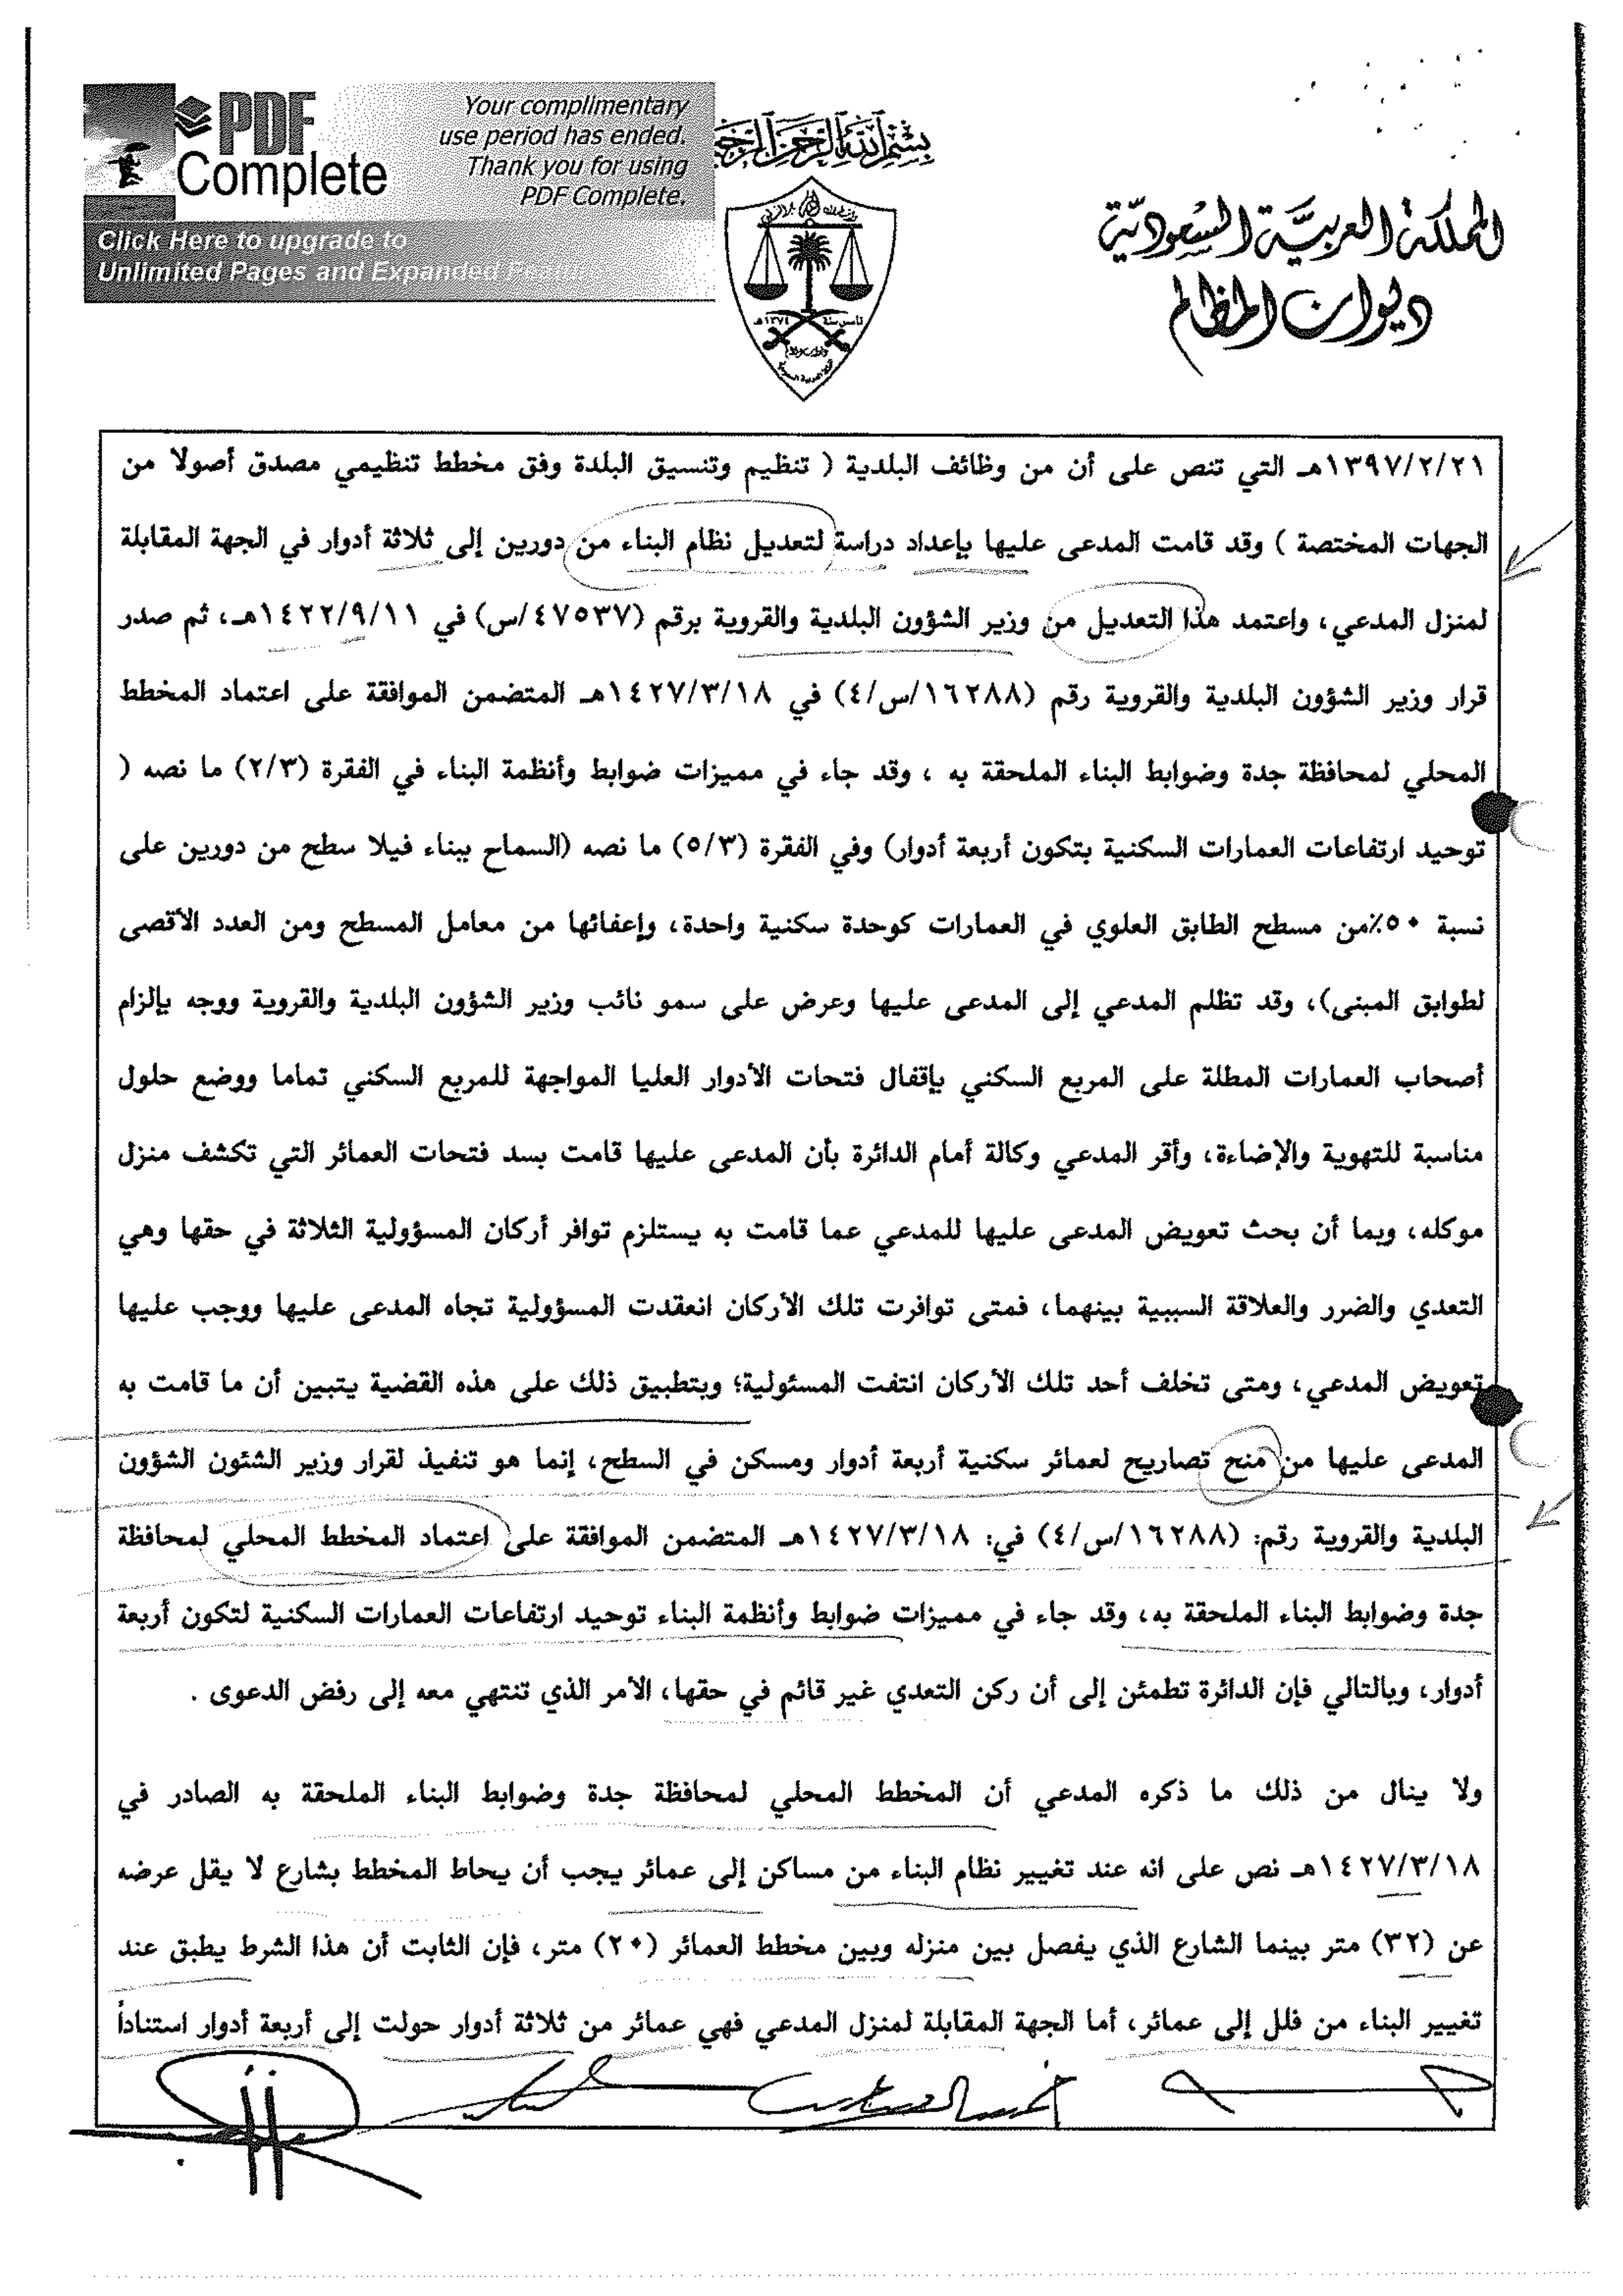 PDF
Complete
Your complimentary
use period has ended.
Thank you for using
PDF Complete.
Click Here to upgrade to
Unlimited Pages and Expanded Features
بسم الله الرحمن الرحيم
المملكة العربية السعودية
ديوان المظالم
تأسس سنة ١٣٧٤هـ
١٣٩٧/٢/٢١هـ التي تنص على أن من وظائف البلدية ( تنظيم وتنسيق البلدة وفق مخطط تنظيمي مصدق أصولا من
الجهات المختصة ) وقد قامت المدعى عليها بإعداد دراسة لتعديل نظام البناء من دورين إلى ثلاثة أدوار في الجهة المقابلة
لمنزل المدعي، واعتمد هذا التعديل من وزير الشؤون البلدية والقروية برقم (٤٧٥٣٧/س) في ١٤٢٢/٩/١١هـ، ثم صدر
قرار وزير الشؤون البلدية والقروية رقم (١٦٢٨٨/س/٤) في ١٤٢٧/٣/١٨هـ المتضمن الموافقة على اعتماد المخطط
المحلي لمحافظة جدة وضوابط البناء الملحقة به ، وقد جاء في مميزات ضوابط وأنظمة البناء في الفقرة (٢/٣) ما نصه (
توحيد ارتفاعات العمارات السكنية بتكون أربعة أدوار) وفي الفقرة (٥/٣) ما نصه (السماح ببناء فيلا سطح من دورين على
نسبة ٥٠٪من مسطح الطابق العلوي في العمارات كوحدة سكنية واحدة، وإعفائها من معامل المسطح ومن العدد الأقصى
لطوابق المبنى)، وقد تظلم المدعي إلى المدعى عليها وعرض على سمو نائب وزير الشؤون البلدية والقروية ووجه بإلزام
أصحاب العمارات المطلة على المربع السكني بإقفال فتحات الأدوار العليا المواجهة للمربع السكني تماما ووضع حلول
مناسبة للتهوية والإضاءة، وأقر المدعي وكالة أمام الدائرة بأن المدعى عليها قامت بسد فتحات العمائر التي تكشف منزل
موكله، وبما أن بحث تعويض المدعى عليها للمدعي عما قامت به يستلزم توافر أركان المسؤولية الثلاثة في حقها وهي
التعدي والضرر والعلاقة السببية بينهما، فمتى توافرت تلك الأركان انعقدت المسؤولية تجاه المدعى عليها ووجب عليها
تعويض المدعي، ومتى تخلف أحد تلك الأركان انتفت المسئولية؛ وبتطبيق ذلك على هذه القضية يتبين أن ما قامت به
المدعى عليها من منح تصاريح لعمائر سكنية أربعة أدوار ومسكن في السطح، إنما هو تنفيذ لقرار وزير الشئون الشؤون
البلدية والقروية رقم: (١٦٢٨٨/س/٤) في: ١٤٢٧/٣/١٨هـ المتضمن الموافقة على اعتماد المخطط المحلي لمحافظة
جدة وضوابط البناء الملحقة به، وقد جاء في مميزات ضوابط وأنظمة البناء توحيد ارتفاعات العمارات السكنية لتكون أربعة
أدوار، وبالتالي فإن الدائرة تطمئن إلى أن ركن التعدي غير قائم في حقها، الأمر الذي تنتهي معه إلى رفض الدعوى .
ولا ينال من ذلك ما ذكره المدعي أن المخطط المحلي لمحافظة جدة وضوابط البناء الملحقة به الصادر في
١٤٢٧/٣/١٨هـ نص على انه عند تغيير نظام البناء من مساكن إلى عمائر يجب أن يحاط المخطط بشارع لا يقل عرضه
عن (٣٢) متر بينما الشارع الذي يفصل بين منزله وبين مخطط العمائر (٢٠) متر، فإن الثابت أن هذا الشرط يطبق عند
تغيير البناء من فلل إلى عمائر، أما الجهة المقابلة لمنزل المدعي فهي عمائر من ثلاثة أدوار حولت إلى أربعة أدوار استناداً